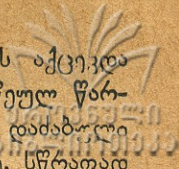 ს აქცევდა
ნეულ წარ-
დამაბული
სწრაფად